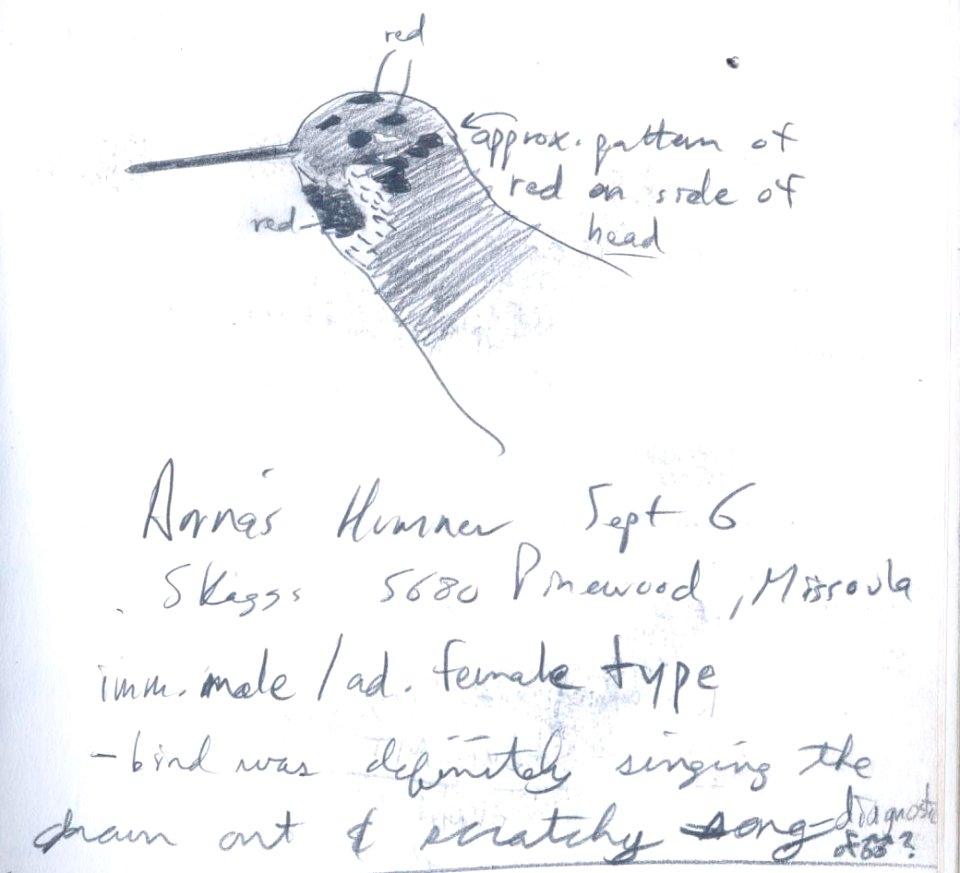 red
approx. pattern of
red on side of
head
red
Anna's Hummer Sept 6
Skaggs 5680 Pinewood, Missoula
imm. male / ad. female type
- bird was definitely singing the
drawn out & scratchy song - diagnostic
of ♂♂?